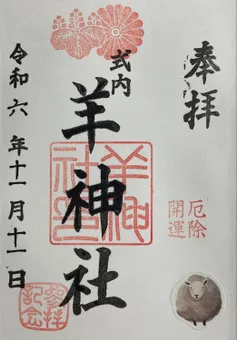 奉拝
厄除
開運
式内
羊神社
羊神社
令和六年十一月十一日
参拝
記念